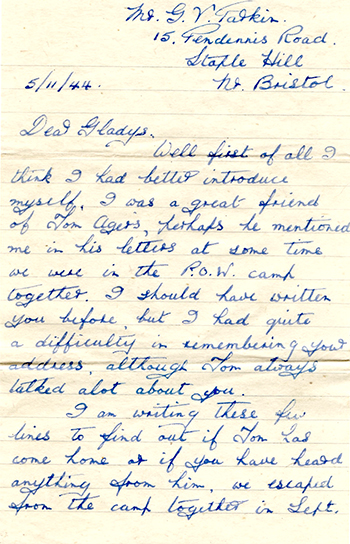 Mr. G. V. Tadkin.
15. Pendennis Road.
Staple Hill
Nr. Bristol.
5/11/44.
Dear Gladys.
Well first of all I
think I had better introduce
myself, I was a great friend
of Tom Agers, perhaps he mentioned
me in his letters at some time
we were in the P.O.W. camp
together. I should have written
you before but I had quite
a difficulty in remembering your
address, although Tom always
talked alot about you.
I am writing these few
lines to find out if Tom has
come home or if you have heard
anything from him, we escaped
from the camp together in Sept.